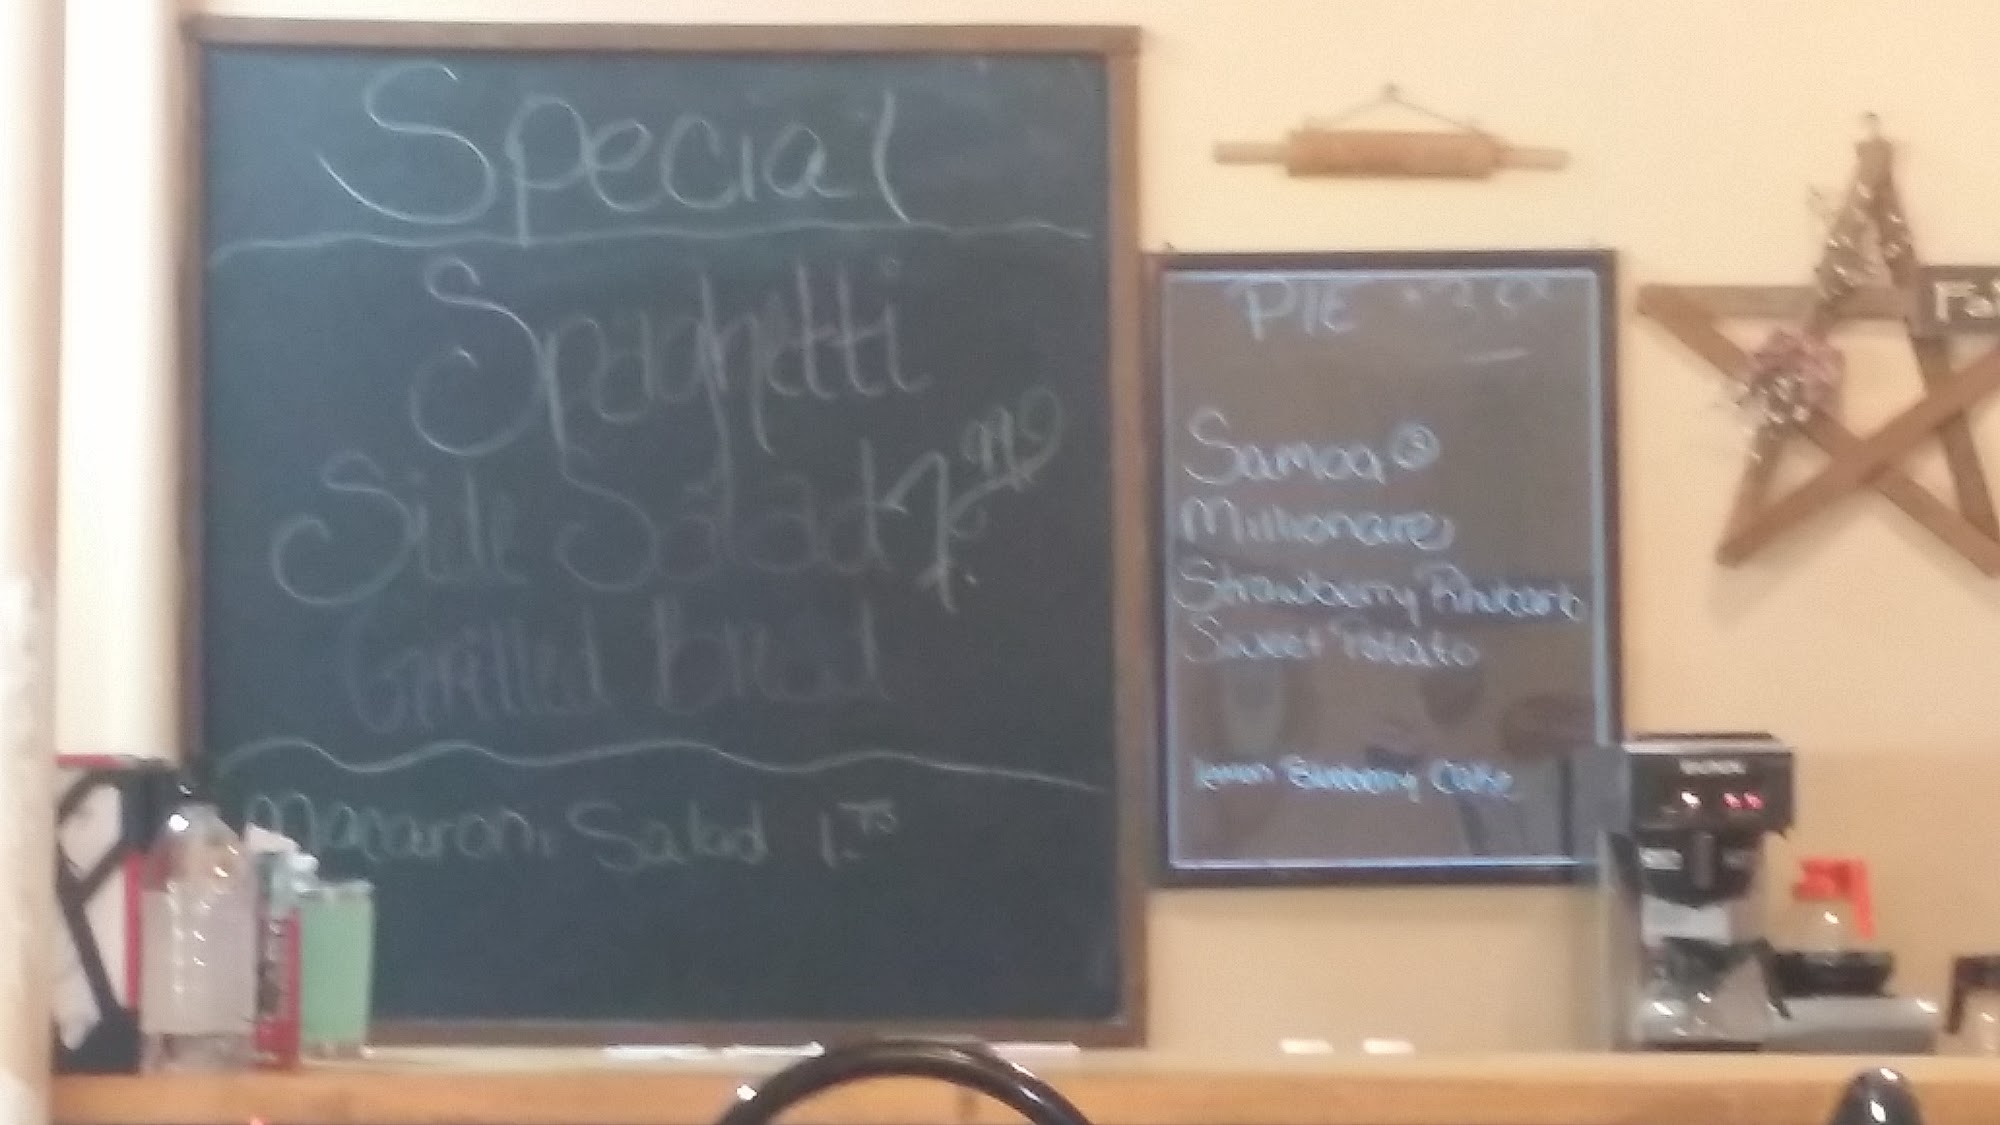 Special
Spaghetti
Side Salad 7.99
Grilled bread
Macaroni Salad 1.75
PIE
Samoa
Millionare
Strawberry Rhubarb
Sweet Potato
Lemon Blueberry Cake
BUNN